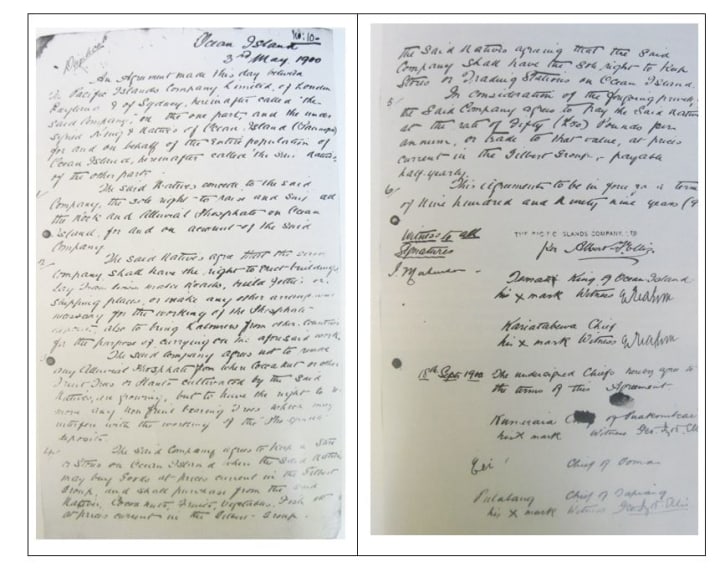 Ocean Island
3rd May 1900
An Agreement made this day between
The Pacific Islands Company, Limited, of London
England & of Sydney, hereinafter called "the
said Company, on the one part, and the under
signed King & Natives of Ocean Island
for and on behalf of the entire population of
Ocean Island, hereinafter called the said Natives
of the other part.
The said Natives concede to the said
Company, the sole right to raise and ship all
the Rock and Alluvial Phosphate on Ocean
Island, for and on account of the said
Company.
The said Natives agree that the said
Company shall have the right to erect buildings,
lay Tram lines make Roads, build Jetties or
shipping places, or make any other arrangements
necessary for the working of the Phosphate
also to bring labourers from other countries
for the purpose of carrying on the aforesaid work.
The said Company agrees not to remove
any Alluvial Phosphate from where Cocoanut or other
Fruit Trees or Plants cultivated by the said
Natives are growing, but to have the right to re-
move any non fruit bearing Trees which may
interfere with the working of the Phosphate
deposits.
4. The said Company agrees to keep a Store
or Stores on Ocean Island where the said Natives
may buy Goods at prices current in the Gilbert
Group, and shall purchase from the said
Natives, Cocoanuts, Fruits, Vegetables, Fish at
at prices current in the Gilbert Group.
the Said Natives agreeing that the said
Company shall have the sole right to keep
Stores or Trading Stations on Ocean Island.
5 In consideration of the foregoing
the Said Company agrees to pay the said Natives
at the rate of Fifty (£50) Pounds per
annum, or trade to that value, at prices
current in the Gilbert Group, payable
half-yearly.
6 This Agreement to be in force for a term
of Nine hundred and ninety nine years (9
Witness to all
Signatures
THE PACIFIC ISLANDS COMPANY, LTD
per Albert F. Ellis
King of Ocean Island
his X mark Witness
Kariatabewa Chief
his X mark Witness
18th Sept. 1900 The undersigned Chiefs hereby agree to
the terms of this Agreement
his X mark Witness
Chief of
Chief of
his X mark Witness